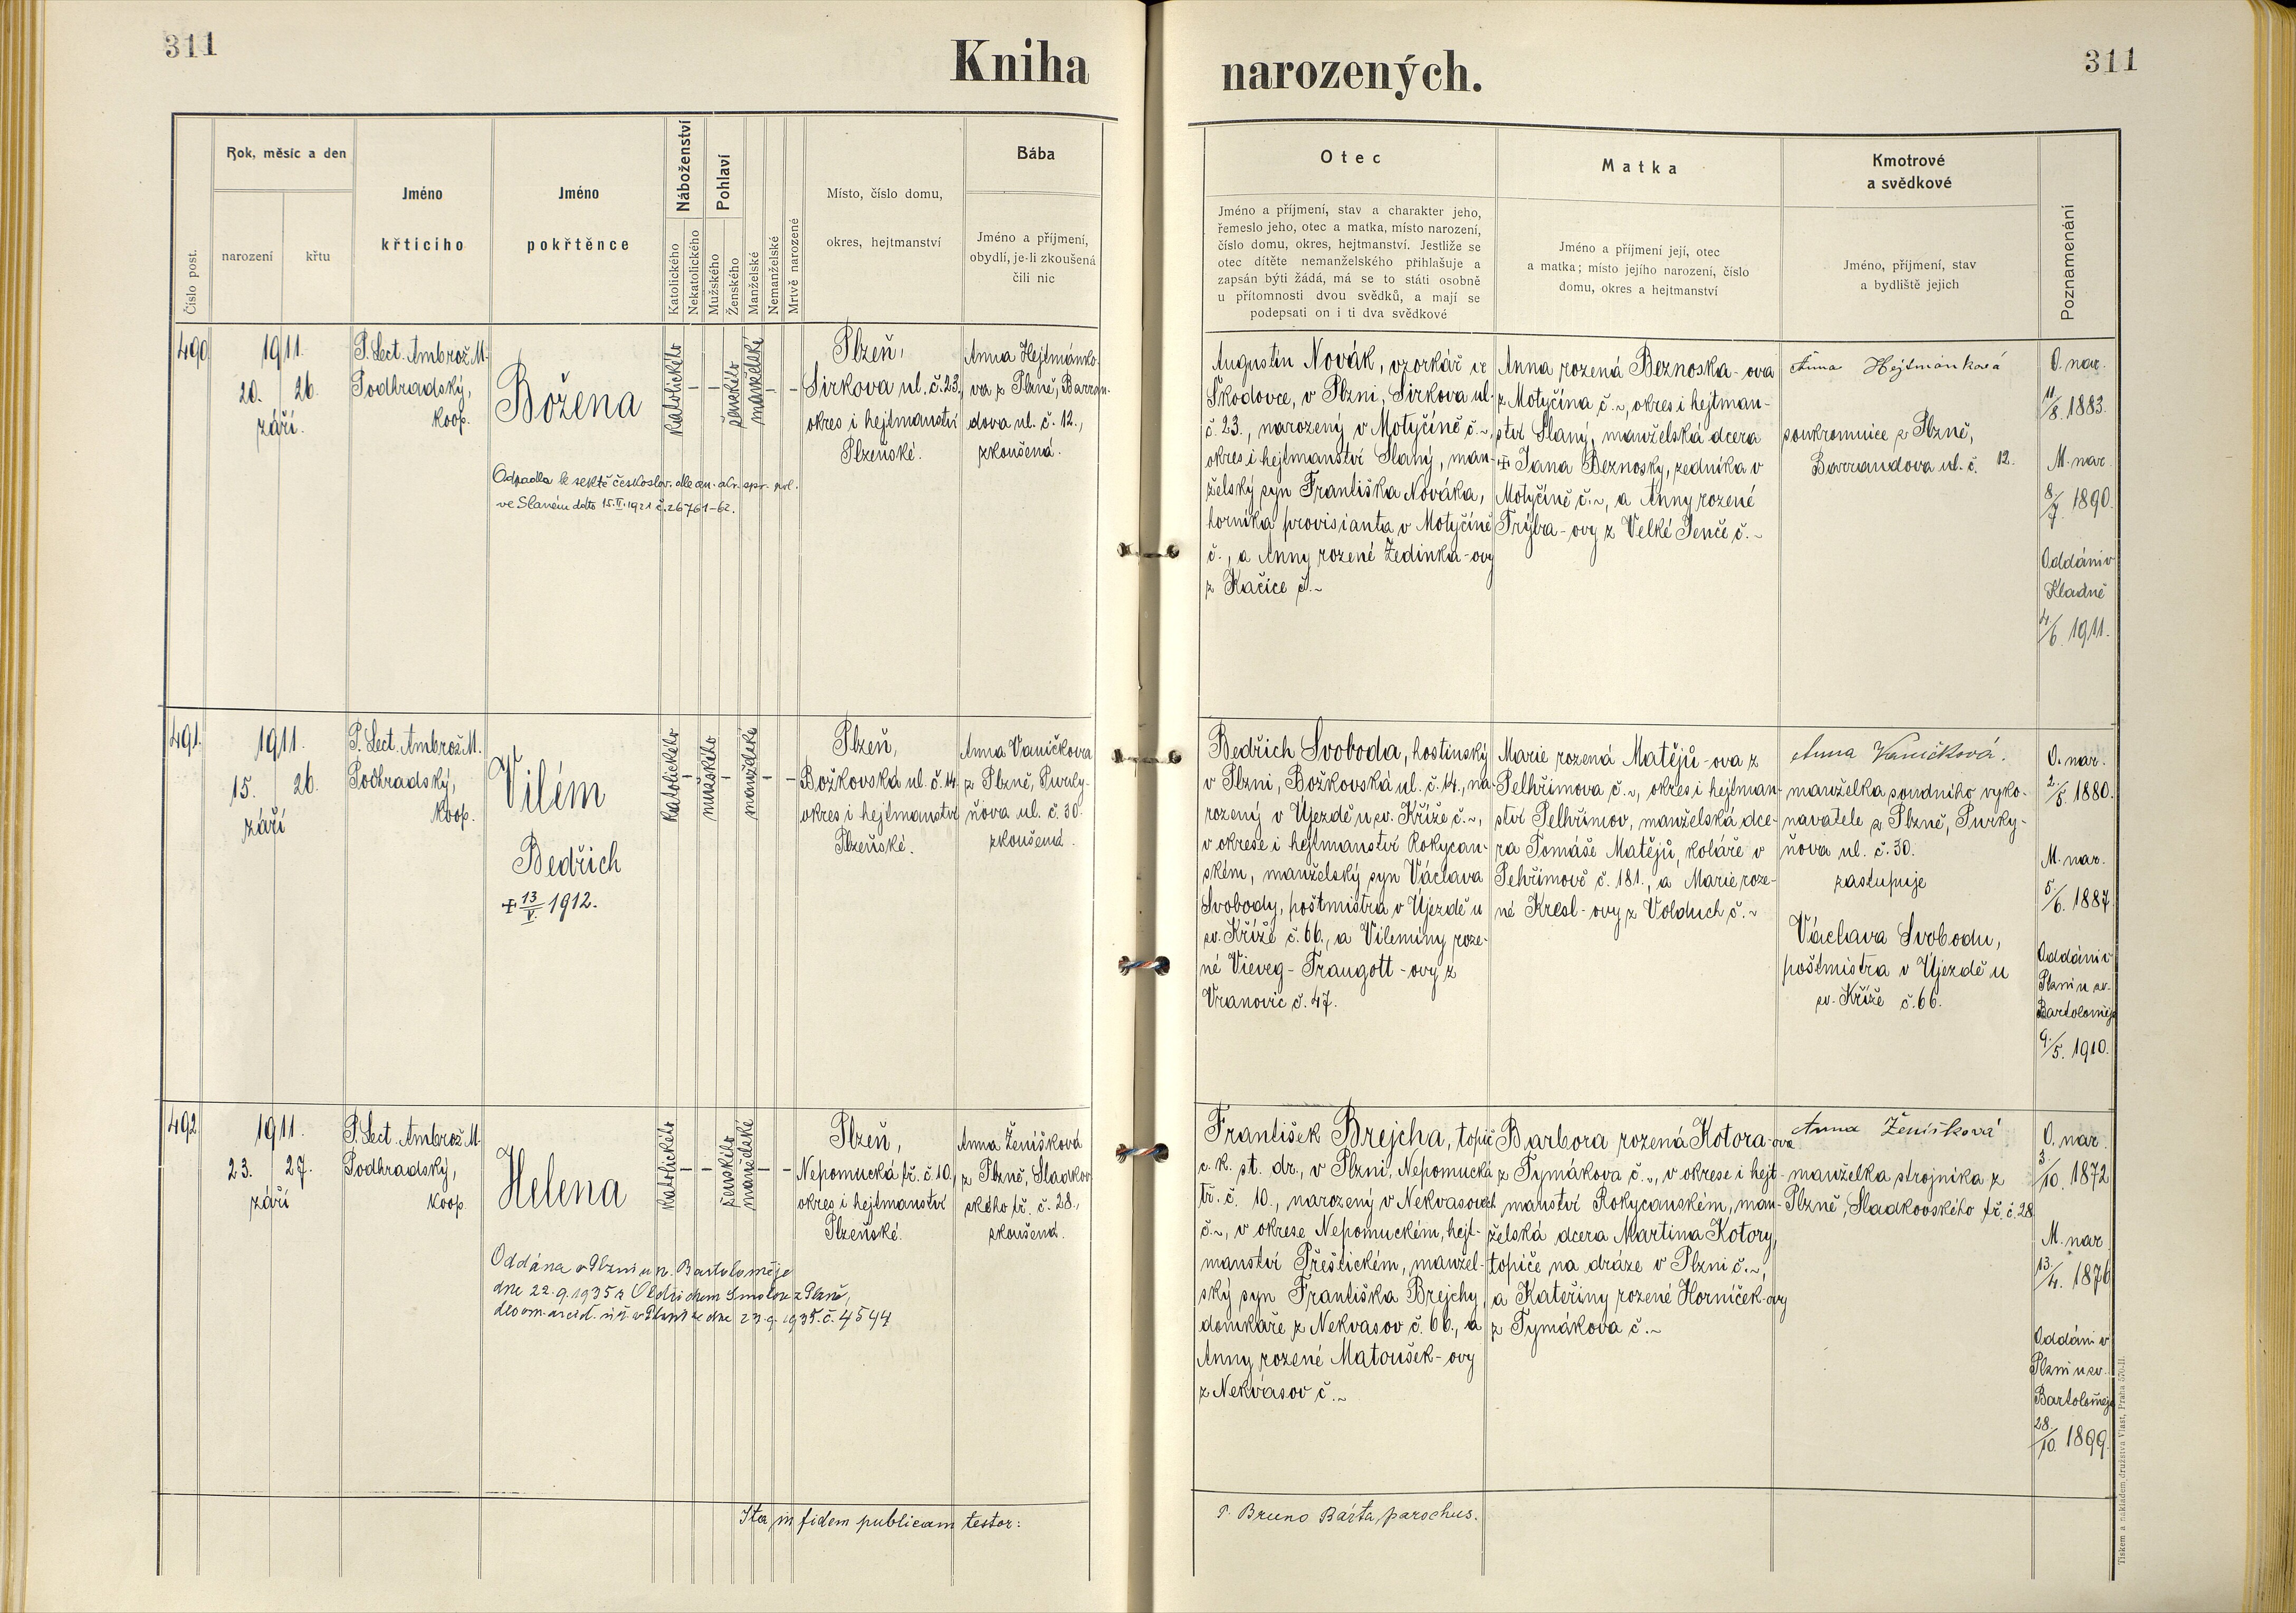 311
Kniha
narozených.
311
Číslo post.
Rok, měsíc a den
narození
křtu
Jméno
křticího
Jméno
pokřtěnce
Náboženství
Katolického
Nekatolického
Pohlaví
Mužského
Ženského
Manželské
Nemanželské
Mrtvě narozené
Místo, číslo domu,
okres, hejtmanství
Bába
Jméno a příjmení,
obydlí, je-li zkoušená
čili nic
Otec
Jméno a příjmení, stav a charakter jeho,
řemeslo jeho, otec a matka, místo narození,
číslo domu, okres, hejtmanství. Jestliže se
otec dítěte nemanželského přihlašuje a
zapsán býti žádá, má se to státi osobně
u přítomnosti dvou svědků, a mají se
podepsati on i ti dva svědkové
Matka
Jméno a příjmení její, otec
a matka; místo jejího narození, číslo
domu, okres a hejtmanství
Kmotrové
a svědkové
Jméno, příjmení, stav
a bydliště jejich
Poznamenání
490.
1911.
20. 26.
září.
P. Lect. Ambrož M.
Podhradský,
koop.
Božena
Odpadla k sektě českoslov. dle ozn. okr. spr. pol.
ve Slaném ddto 15.II.1921 č. 26761-62.
katolického
–
–
ženského
manželské
–
–
Plzeň,
Sirkova ul. č. 23.,
okres i hejtmanství
Plzeňské.
Anna Hejtmánko-
va z Plzně, Barran-
dova ul. č. 12.,
zkoušená.
Augustin Novák, vzorkář ve
Škodovce, v Plzni, Sirkova ul.
č. 23., narozený v Motyčíně č. ~,
okres i hejtmanství Slaný, man-
želský syn Františka Nováka,
horníka provisianta v Motyčíně
č., a Anny rozené Žedinka-ovy
z Kačice č. ~
Anna rozená Beznoska-ova
z Motyčína č. ~, okres i hejtman-
ství Slaný, manželská dcera
✠ Jana Beznosky, zedníka v
Motyčíně č. ~, a Anny rozené
Trýba-ovy z Velké Jenče č. ~
Anna Hejtmánková
soukromnice z Plzně,
Barrandova ul. č. 12.
O. nar.
11/8. 1883.
M. nar.
8/7. 1890.
Oddáni v
Kladně
4/6. 1911.
491.
1911.
15. 26.
září
P. Lect. Ambrož M.
Podhradský,
koop.
Vilém
Bedřich
✠ 13/V. 1912.
katolického
–
mužského
–
manželské
–
–
Plzeň,
Božkovská ul. č. 14.,
okres i hejtmanství
Plzeňské.
Anna Vaníčkova
z Plzně, Purky-
ňova ul. č. 30.
zkoušená.
Bedřich Svoboda, hostinský
v Plzni, Božkovská ul. č. 14., na-
rozený v Újezdě u sv. Kříže č. ~,
v okrese i hejtmanství Rokycan-
ském, manželský syn Václava
Svobody, poštmistra v Újezdě u
sv. Kříže č. 66., a Vilemíny roze-
né Vieveg-Traugott-ovy z
Vranovic č. 47.
Marie rozená Matějů-ova z
Pelhřimova č. ~, okres i hejtman-
ství Pelhřimov, manželská dce-
ra Tomáše Matějů, koláře v
Pehřimově č. 181., a Marie roze-
né Kresl-ovy z Volduch č. ~
Anna Vaníčková.
manželka soudního vyko-
navatele z Plzně, Purky-
ňova ul. č. 30.
zastupuje
Václava Svobodu,
poštmistra v Újezdě u
sv. Kříže č. 66.
O. nar.
2/8. 1880.
M. nar.
5./6. 1887.
Oddáni v
Plzni u sv.
Bartoloměje
9./5. 1910.
492
1911.
23. 27.
září
P. Lect. Ambrož M.
Podhradský,
koop.
Helena
Oddána v Plzni u sv. Bartoloměje
dne 22.9.1935 s Oldřichem Smolou z Plzně,
23.9.1935. č. 4544
katolického
–
–
ženského
manželské
–
–
Plzeň,
Nepomucká tř. č. 10.,
okres i hejtmanství
Plzeňské.
Anna Ženíšková
z Plzně, Sladkov-
ského tř. č. 28.,
zkoušená.
František Brejcha, topič
c. k. st. dr., v Plzni, Nepomucká
tř. č. 10., narozený v Nekvasovech
č. ~, v okrese Nepomuckém, hejt-
manství Přeštickém, manžel-
ský syn Františka Brejchy,
domkáře z Nekvasov č. 66., a
Anny rozené Matoušek-ovy
z Nekvasov č. ~
Barbora rozená Kotora-ova
z Tymákova č. ~, v okrese i hejt-
manství Rokycanském, man-
želská dcera Martina Kotory,
topiče na dráze v Plzni č. ~,
a Kateřiny rozené Horníček-ovy
z Tymákova č. ~
Anna Ženíšková
manželka strojníka z
Plzně, Sladkovského tř. č. 28
O. nar.
3./10. 1872
M. nar
13./4. 1876
Oddáni v
Plzni u sv.
Bartoloměje
28./10. 1899.
Ita in fidem publicam testor:
P. Bruno Bárta, parochus.
Tiskem a nakladem družstva Vlast, Praha 570-II.